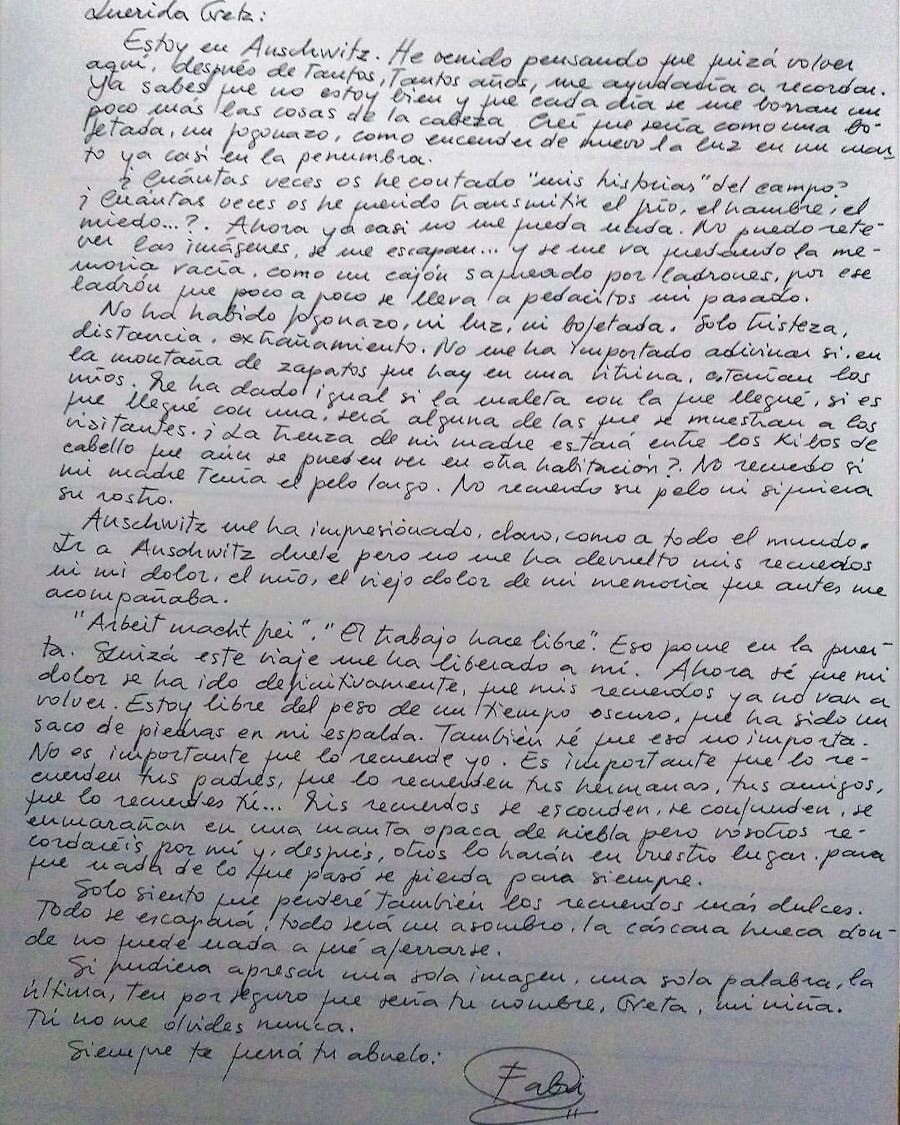 Querida Greta:
Estoy en Auschwitz. He venido pensando que quizá volver
aquí, después de tantos, tantos años, me ayudaría a recordar.
Ya sabes que no estoy bien y que cada día se me borran un
poco más las cosas de la cabeza. Creí que sería como una bo-
fetada, un fogonazo, como encender de nuevo la luz en un cuar-
to ya casi en la penumbra.
¿Cuántas veces os he contado "mis historias" del campo?
¿Cuántas veces os he querido transmitir el frío, el hambre, el
miedo...?. Ahora ya casi no me queda nada. No puedo rete-
ner las imágenes, se me escapan... y se me va quedando la me-
moria vacía, como un cajón saqueado por ladrones, por ese
ladrón que poco a poco se lleva a pedacitos mi pasado.
No ha habido fogonazo, ni luz, ni bofetada. Solo tristeza,
distancia, extrañamiento. No me ha importado adivinar si, en
la montaña de zapatos que hay en una vitrina, estarían los
míos. Me ha dado igual si la maleta con la que llegué, si es
que llegué con una, será alguna de las que se muestran a los
visitantes. ¿La trenza de mi madre estará entre los kilos de
cabello que aún se pueden ver en otra habitación?. No recuerdo si
mi madre tenía el pelo largo. No recuerdo su pelo ni siquiera
su rostro.
Auschwitz me ha impresionado, claro, como a todo el mundo.
Ir a Auschwitz duele pero no me ha devuelto mis recuerdos
ni mi dolor, el mío, el viejo dolor de mi memoria que antes me
acompañaba.
"Arbeit macht frei". "El trabajo hace libre". Eso pone en la puer-
ta. Quizá este viaje me ha liberado a mí. Ahora sé que mi
dolor se ha ido definitivamente, que mis recuerdos ya no van a
volver. Estoy libre del peso de un tiempo oscuro, que ha sido un
saco de piedras en mi espalda. También sé que eso no importa.
No es importante que lo recuerde yo. Es importante que lo re-
cuerden tus padres, que lo recuerden tus hermanas, tus amigos,
que lo recuerdes tú... Mis recuerdos se esconden, se confunden, se
enmarañan en una manta opaca de niebla pero vosotros re-
cordaréis por mí y, después, otros lo harán en vuestro lugar, para
que nada de lo que pasó se pierda para siempre.
Solo siento que perderé también los recuerdos más dulces.
Todo se escapará, todo será un asombro, la cáscara hueca don-
de no quede nada a qué aferrarse.
Si pudiera apresar una sola imagen, una sola palabra, la
última, ten por seguro que sería tu nombre, Greta, mi niña.
Tú no me olvides nunca.
Siempre te querrá tu abuelo:
Fabri